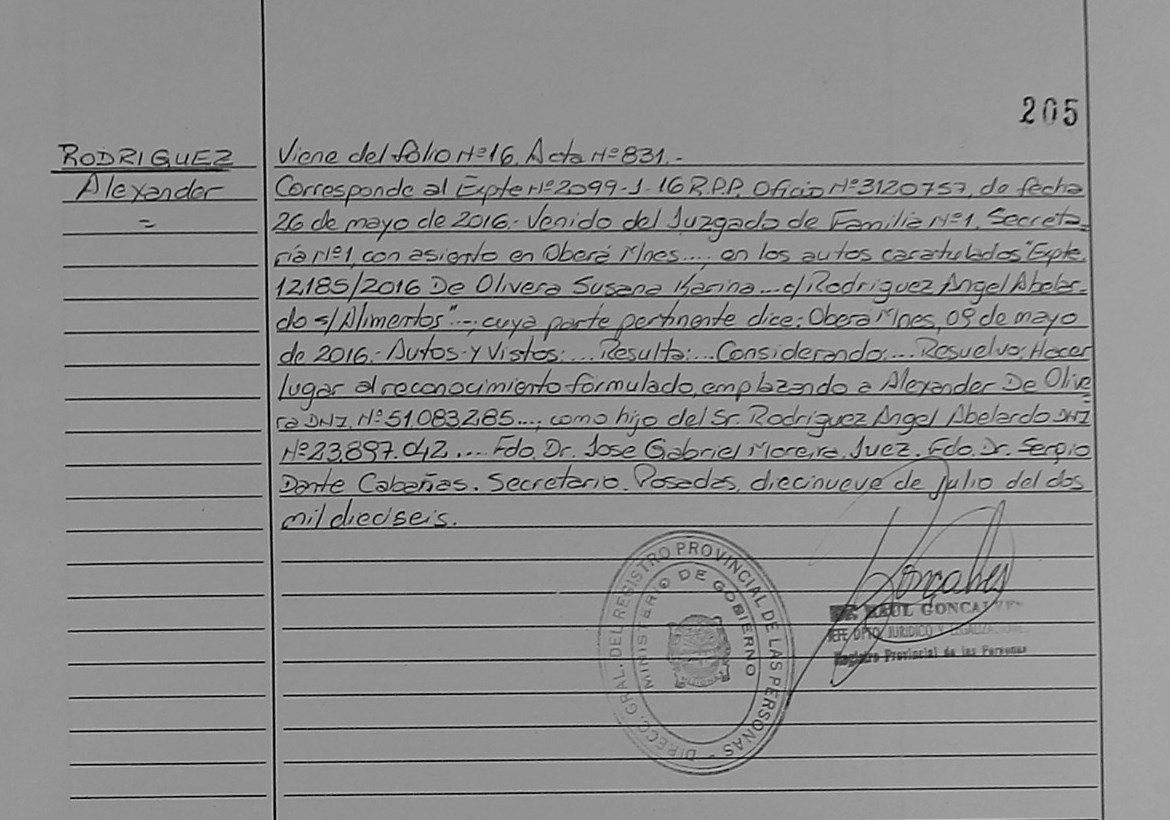 205
RODRIGUEZ
Alexander
=
Viene del folio Nº16. Acta Nº831.-
Corresponde al Expte Nº2099-J-16 R.P.P. Oficio Nº3120757, de fecha
26 de mayo de 2016.- Venido del Juzgado de Familia Nº1, Secreta-
ría Nº1, con asiento en Oberá Mnes...., en los autos caratulados "Expte.
12185/2016 De Olivera Susana Karina... c/ Rodriguez Angel Abelar-
do s/ Alimentos"-, cuya parte pertinente dice: Oberá Mnes, 09 de mayo
de 2016.- Autos y Vistos:... Resulta:... Considerando:... Resuelvo: Hacer
lugar al reconocimiento formulado, emplazando a Alexander De Olive
ra DNI. Nº51.083.285..., como hijo del Sr. Rodriguez Angel Abelardo DNI
Nº23.897.042.... Fdo. Dr. Jose Gabriel Moreira. Juez. Fdo. Dr. Sergio
Dante Cabañas. Secretario. Posadas, diecinueve de Julio del dos
mil dieciseis.
DIRECC. GRAL. DEL REGISTRO PROVINCIAL DE LAS PERSONAS -
MINISTERIO DE GOBIERNO
RAUL GONCALVES
JEFE DPTO. JURIDICO Y LEGALIZACIONES
Registro Provincial de las Personas